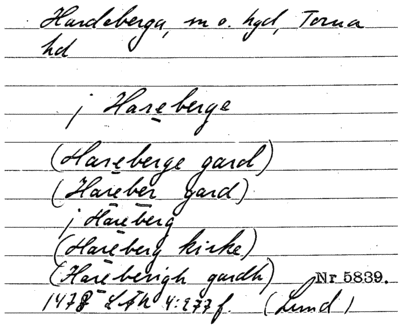 Hardeberga, sn o. hgd, Torna
hd
j Hareberge
(Hareberge gard)
(Hareber gard)
j Hareberg
(Hareberg kirke)
(Hareberigh gardh) Nr 5839.
1478 4:277 f. (Lund)